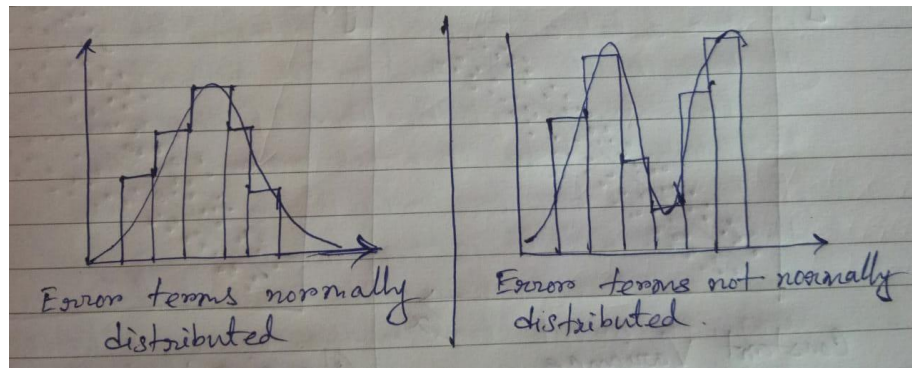 Error terms normally
distributed
Error terms not normally
distributed.